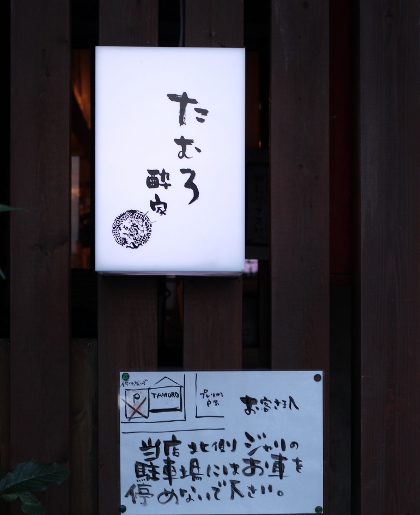 たむろ
酔家
P
TAMURO
お客さまへ
当店北側ジャリの
駐車場にはお車を
停めないで下さい。